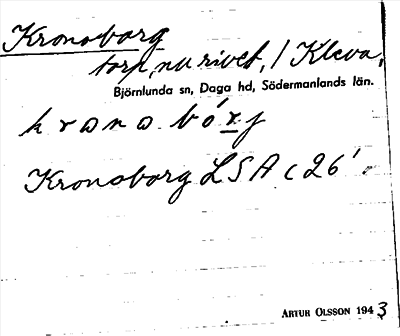 Kronoborg
torp, nu rivet, / Kleva,
Björnlunda sn, Daga hd, Södermanlands län.
Kronoborg LSA c 26'
ARTUR OLSSON 1943